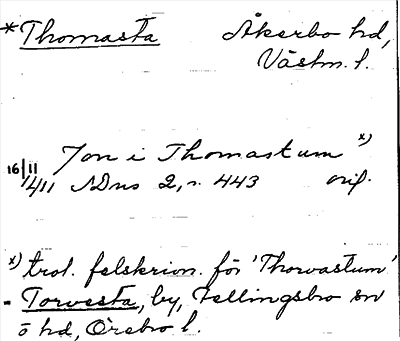 *Thomasta Åkerbo hd,
Västm. l.
16/11 1411 Jon i Thomastum x)
SDns 2, s. 443 orig.
x) trol. felskrivn. för 'Thorvastum'
= Torvesta, by, Fellingsbro sn
o hd, Örebro l.